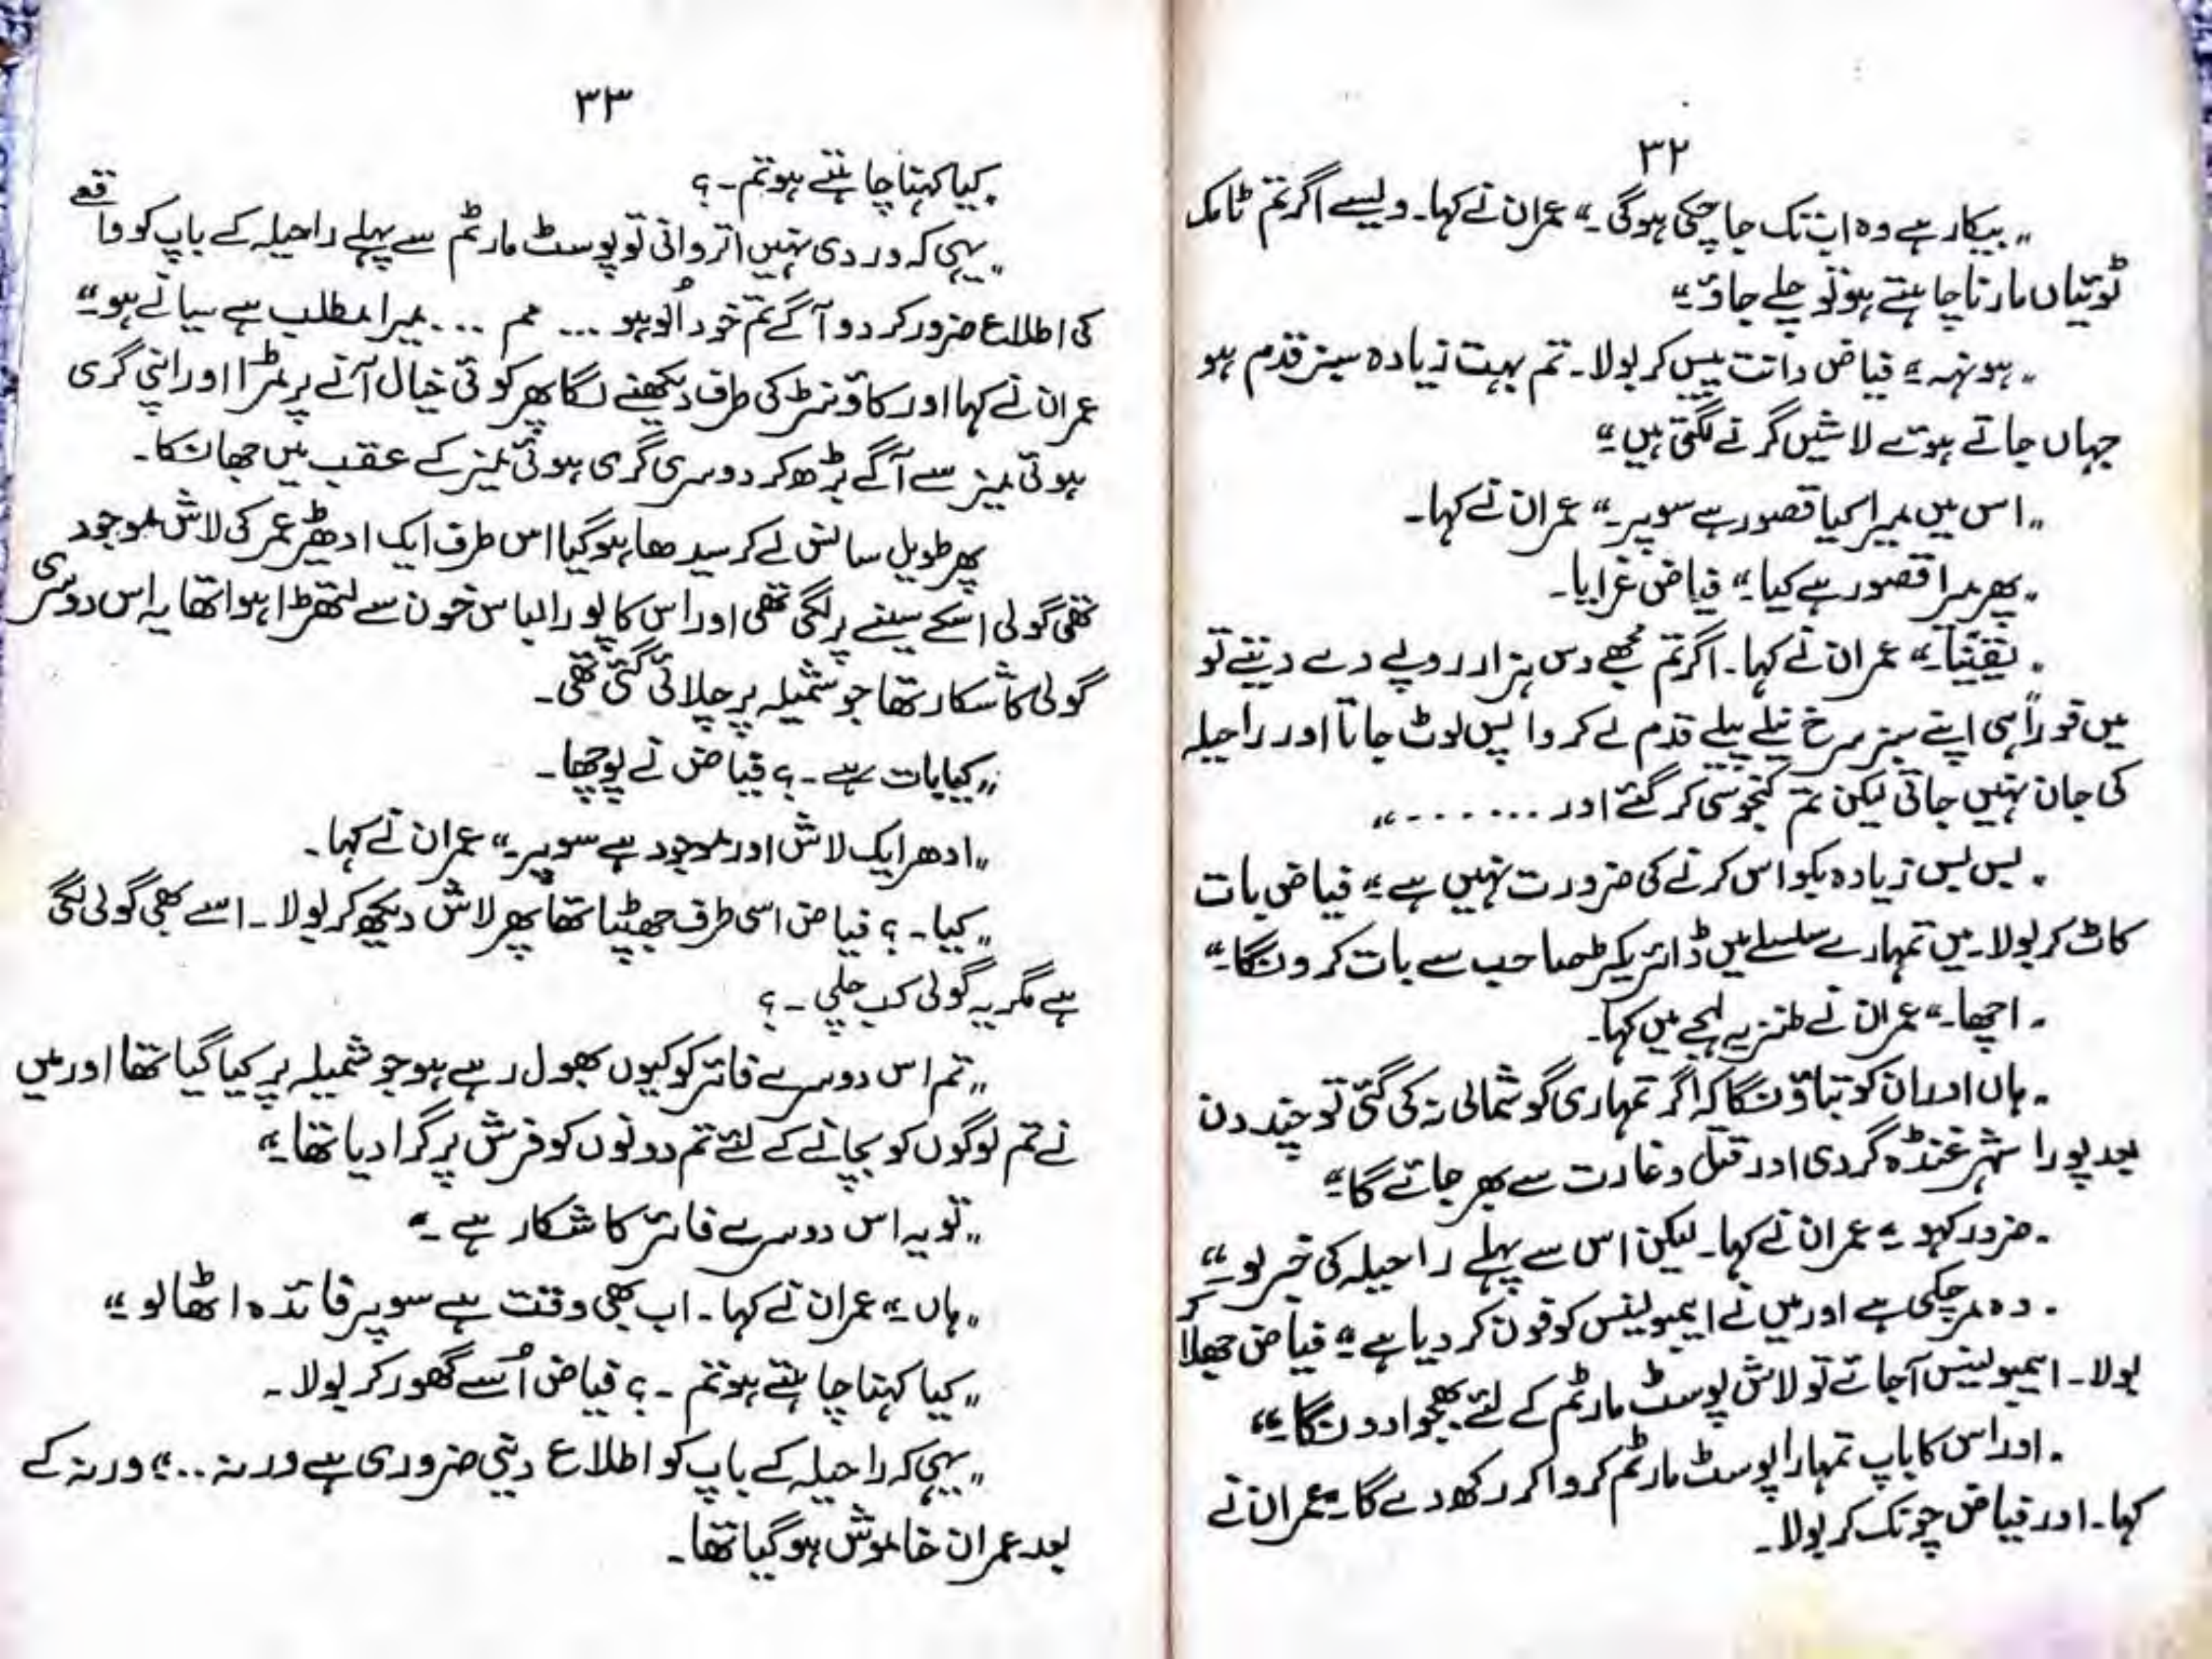 ۳۲
„ بیکار ہے وہ اب تک جا چکی ہوگی ۔“ عمران نے کہا۔ ویسے اگر تم ٹامک
ٹوئیاں مارنا چاہتے ہو تو چلے جاؤ ۔“
„ ہونہہ ۔“ فیاض دانت پیس کر بولا ۔ تم بہت زیادہ سبز قدم ہو
جہاں جاتے ہو تے لاشیں گرنے لگتی ہیں ۔“
„ اس میں میرا کیا قصور ہے سوپر ۔“ عمران نے کہا۔
„ پھر میرا قصور ہے کیا ۔“ فیاض غرایا۔
„ یقیناً ۔“ عمران نے کہا۔ اگر تم مجھے دس ہزار روپے دے دیتے تو
میں فوراً ہی اپنے سبز سرخ نیلے پیلے قدم لے کر واپس لوٹ جاتا اور راحیلہ
کی جان نہیں جاتی لیکن تم کنجوسی کر گئے اور ۔۔۔۔۔۔۔“
„ بس بس زیادہ بکواس کرنے کی ضرورت نہیں ہے ۔“ فیاض بات
کاٹ کر بولا۔ میں تمہارے سلسلے میں ڈائریکٹر صاحب سے بات کرونگا ۔“
„ اچھا ۔“ عمران نے طنزیہ لہجے میں کہا۔
„ ہاں اور ان کو بتاؤنگا کہ اگر تمہاری گوشمالی نہ کی گئی تو چند دن
بعد پورا شہر غنڈہ گردی اور قتل و غارت سے بھر جائے گا ۔“
„ ضرور کہو ۔“ عمران نے کہا۔ لیکن اس سے پہلے راحیلہ کی خبر لو ۔“
„ وہ مر چکی ہے اور میں نے ایمبولینس کو فون کر دیا ہے ۔“ فیاض جھلا کر
بولا۔ ایمبولینس آجائے تو لاش پوسٹ مارٹم کے لئے بھجوا دونگا ۔“
„ اور اس کا باپ تمہارا پوسٹ مارٹم کروا کر رکھ دے گا ۔“ عمران نے
کہا۔ اور فیاض چونک کر بولا۔
۳۳
„ کیا کہنا چاہتے ہو تم ۔؟
„ یہی کہ وردی نہیں اتروانی تو پوسٹ مارٹم سے پہلے راحیلہ کے باپ کو واقعے
کی اطلاع ضرور کر دو آگے تم خود اُلو ہو ... مم ... میرا مطلب ہے سیانے ہو ۔“
عمران نے کہا اور کاؤنٹر کی طرف دیکھنے لگا پھر کوئی خیال آنے پر مڑا اور اپنی گری
ہوئی میز سے آگے بڑھ کر دوسری گری ہوئی میز کے عقب میں جھانکا۔
پھر طویل سانس لے کر سیدھا ہو گیا اس طرف ایک ادھیڑ عمر کی لاش موجود
تھی گولی اسکے سینے پر لگی تھی اور اس کا پورا لباس خون سے لتھڑا ہوا تھا یہ اس دوسری
گولی کا شکار تھا جو شمیلہ پر چلائی گئی تھی۔
„ کیا بات ہے ۔؟ فیاض نے پوچھا۔
„ ادھر ایک لاش اور موجود ہے سوپر ۔“ عمران نے کہا۔
„ کیا ۔؟ فیاض اسی طرف جھپٹا تھا پھر لاش دیکھ کر بولا۔ اسے بھی گولی لگی
ہے مگر یہ گولی کب چلی ۔؟
„ تم اس دوسرے فائر کو کیوں بھول رہے ہو جو شمیلہ پر کیا گیا تھا اور میں
نے تم لوگوں کو بچانے کے لئے تم دونوں کو فرش پر گرا دیا تھا ۔“
„ تو یہ اس دوسرے فائر کا شکار ہے ۔“
„ ہاں ۔“ عمران نے کہا۔ اب بھی وقت ہے سوپر فائدہ اٹھا لو ۔“
„ کیا کہنا چاہتے ہو تم ۔؟ فیاض اُسے گھور کر بولا۔
„ یہی کہ راحیلہ کے باپ کو اطلاع دینی ضروری ہے ورنہ ..“ ورنہ کے
بعد عمران خاموش ہو گیا تھا۔